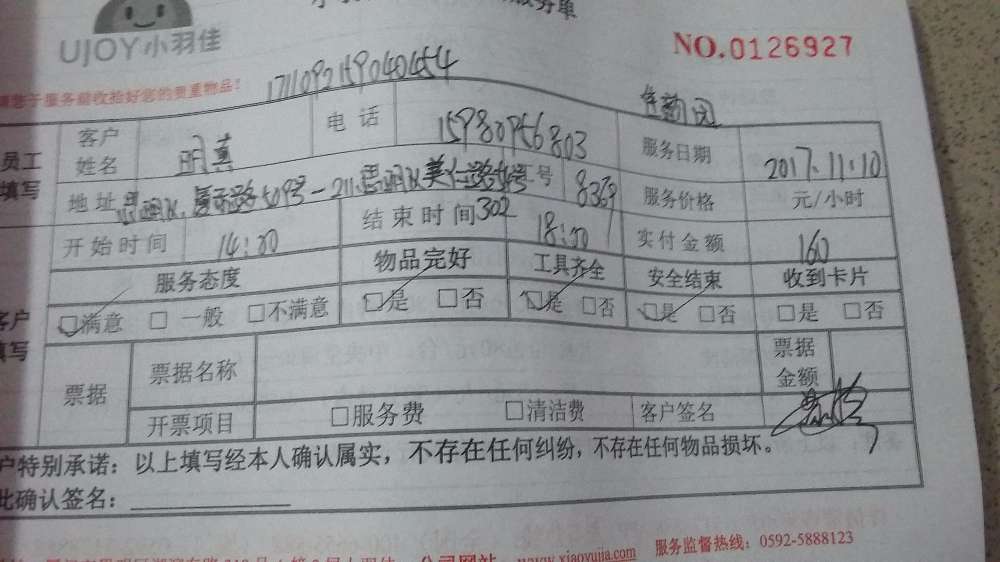 服务单
UJOY小羽佳
NO.0126927
于服务前收拾好您的贵重物品:
1711092159040454
员工填写
客户姓名 明真 电话 15980956803 服务日期 2017.11.10
地址 号 8369 服务价格 元/小时
开始时间 14:00 结束时间 302 18:00 实付金额 160
服务态度 物品完好 工具齐全 安全结束 收到卡片
客户填写
□满意 □一般 □不满意 □是 □否 □是 □否 □是 □否 □是 □否
票据 票据名称 票据金额
开票项目 □服务费 □清洁费 客户签名
户特别承诺:以上填写经本人确认属实,不存在任何纠纷,不存在任何物品损坏。
此确认签名:
公司网站 www.xiaoyujia.com 服务监督热线:0592-5888123